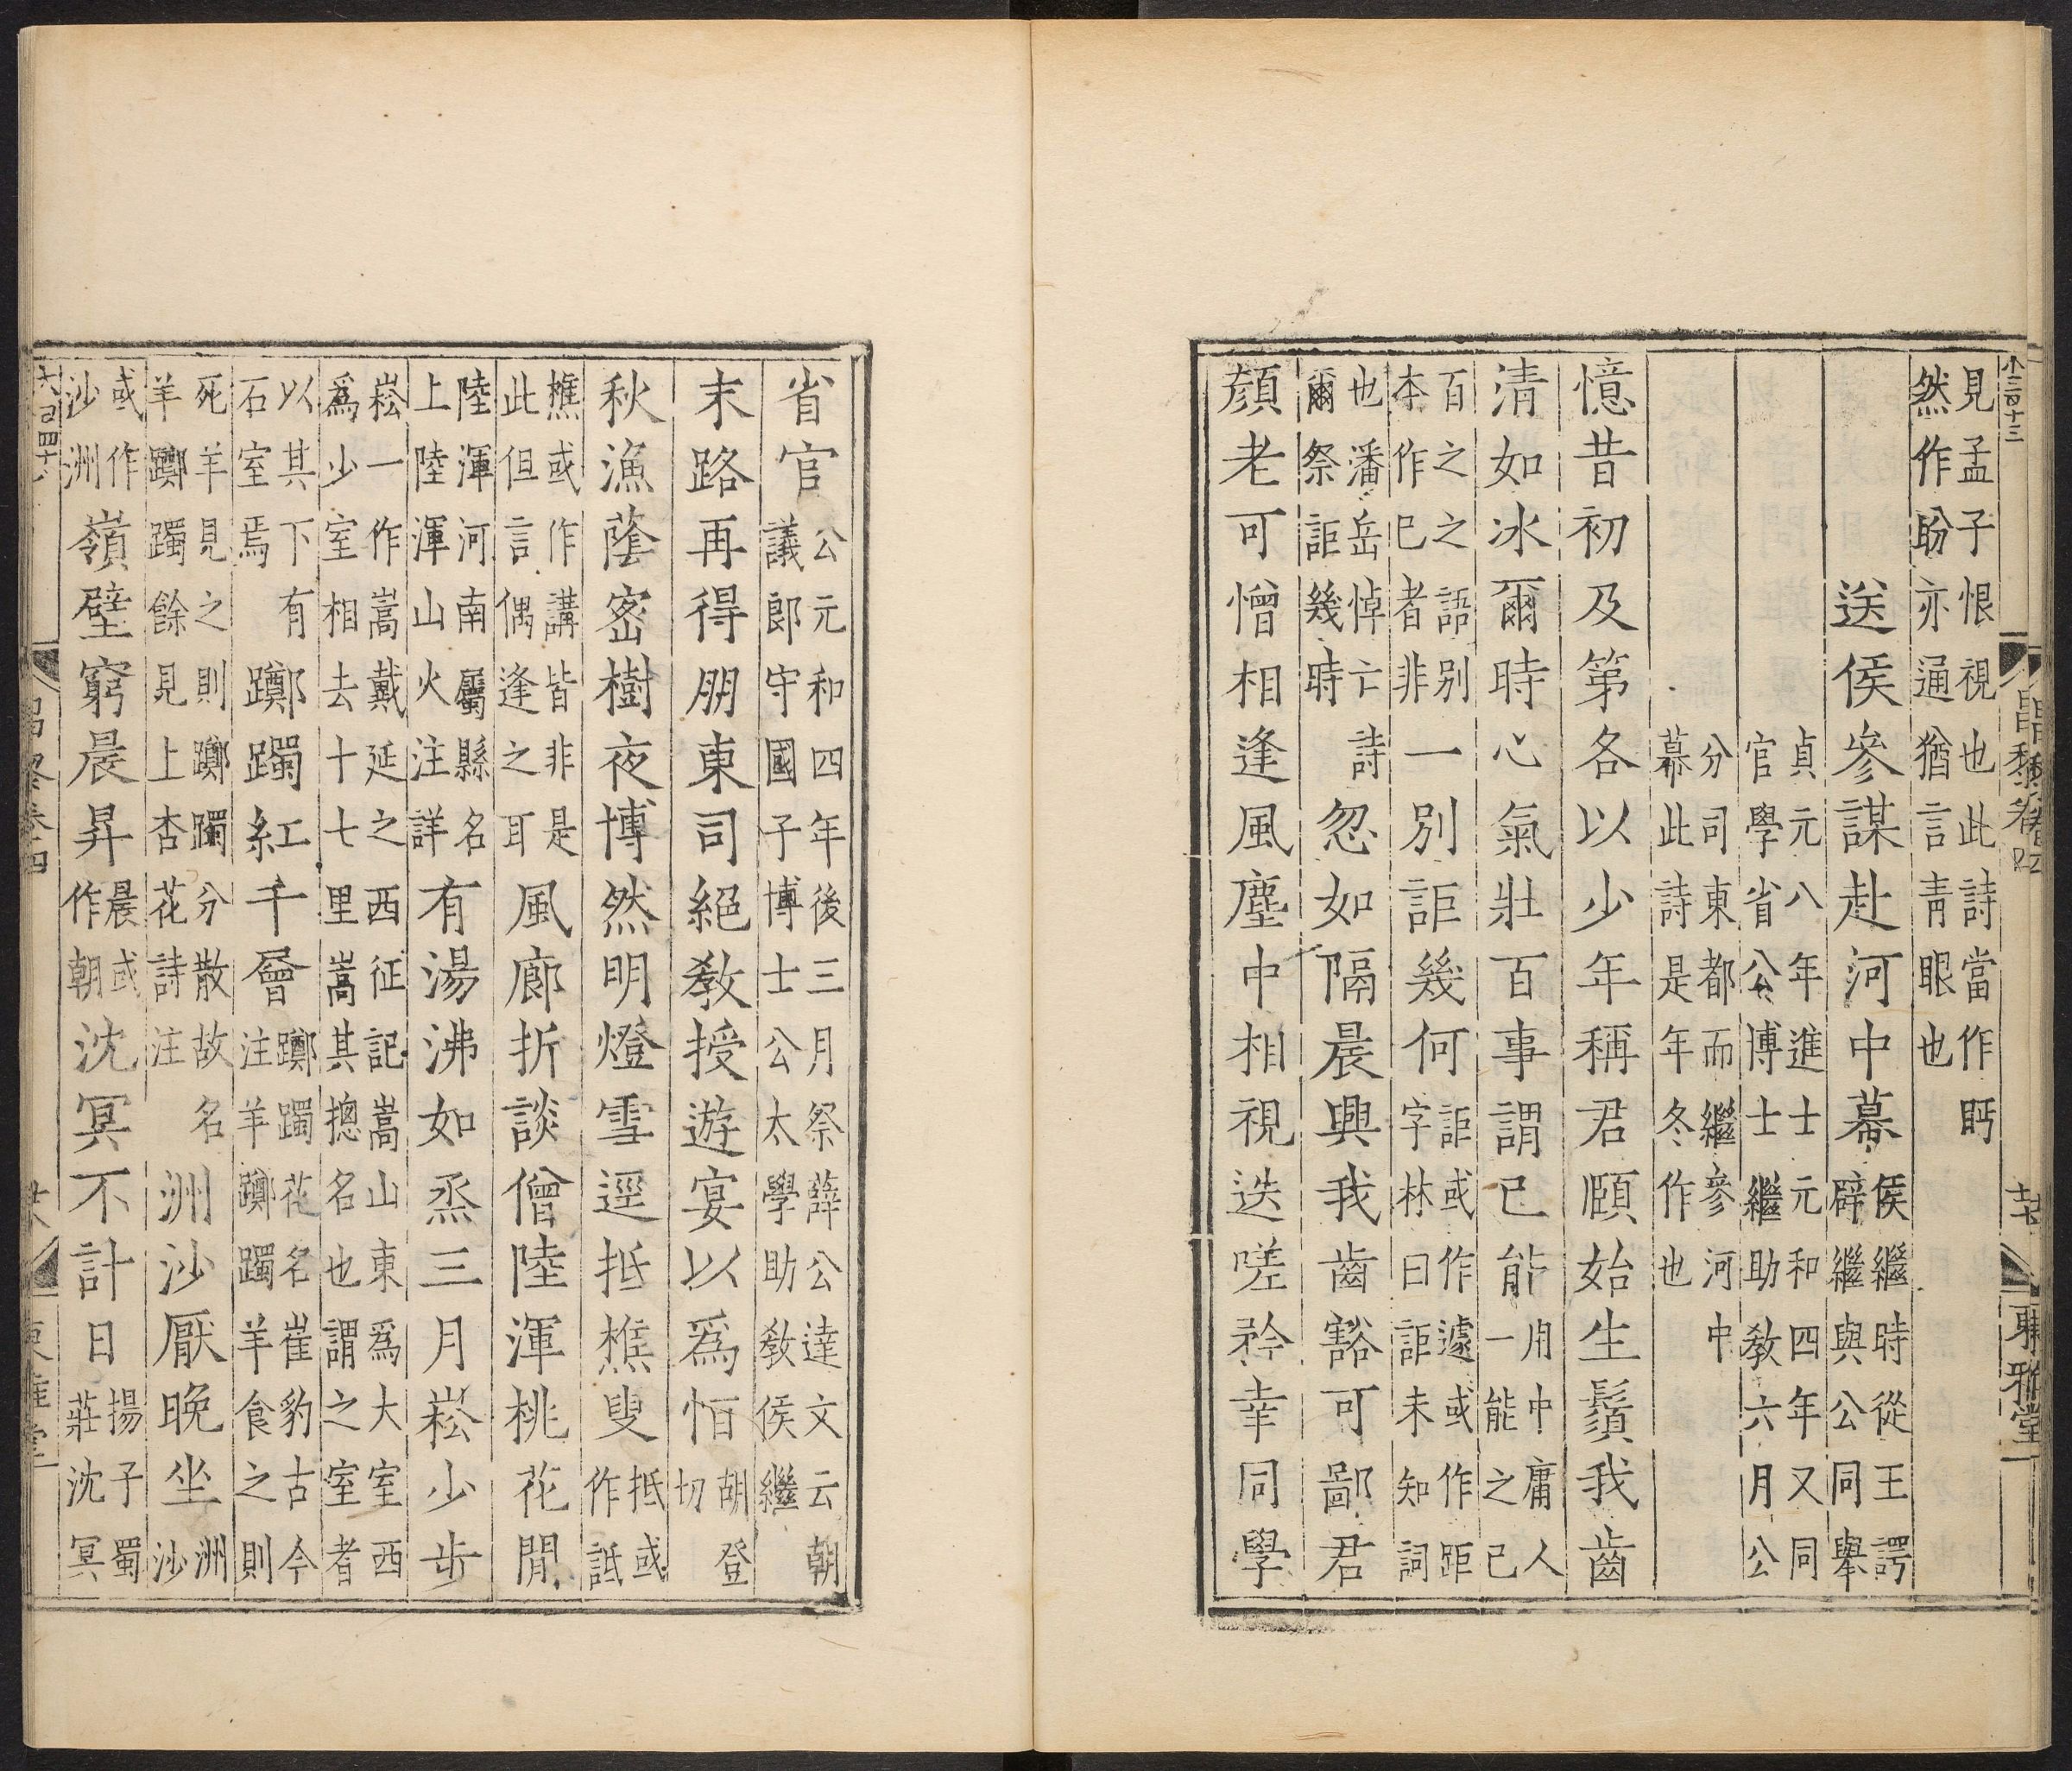 小三百十三
昌黎卷四
東雅堂
見孟子恨視也此詩當作眄
然作盼亦通猶言青眼也
送侯參謀赴河中幕
侯繼時從王諤
辟繼與公同舉
貞元八年進士元和四年又同
官學省公博士繼助敎六月公
分司東都而繼參河中
幕此詩是年冬作也
憶昔初及第各以少年稱君頤始生鬚我齒
清如冰爾時心氣壯百事謂已能
用中庸人
一能之己
百之之語别
本作已者非
一別詎幾何
詎或作遽或作距
字林曰詎未知詞
也潘岳悼亡詩
爾祭詎幾時
忽如隔晨興我齒豁可鄙君
顔老可憎相逢風塵中相視迭嗟矜幸同學
省官
公元和四年後三月祭薛公達文云朝
議郎守國子博士公太學助敎侯繼
末路再得朋東司絕敎授遊宴以爲恒
胡登
切
秋漁蔭密樹夜博然明燈雪逕抵樵叟
抵或
作詆
樵或作講皆非是
此但言偶逢之耳
風廊折談僧陸渾桃花閒
陸渾河南屬縣名
上陸渾山火注詳
有湯沸如烝三月崧少步
崧一作嵩戴延之西征記嵩山東爲大室西
爲少室相去十七里嵩其摠名也謂之室者
以其下有
石室焉
躑躅紅千層
躑躅花名崔豹古今
注羊躑躅羊食之則
死羊見之則躑躅分散故名
羊躑躅餘見上杏花詩注
洲沙厭晚坐
洲
沙
或作
沙洲
嶺壁窮晨昇
晨或
作朝
沈冥不計日
揚子蜀
莊沈冥
東雅堂